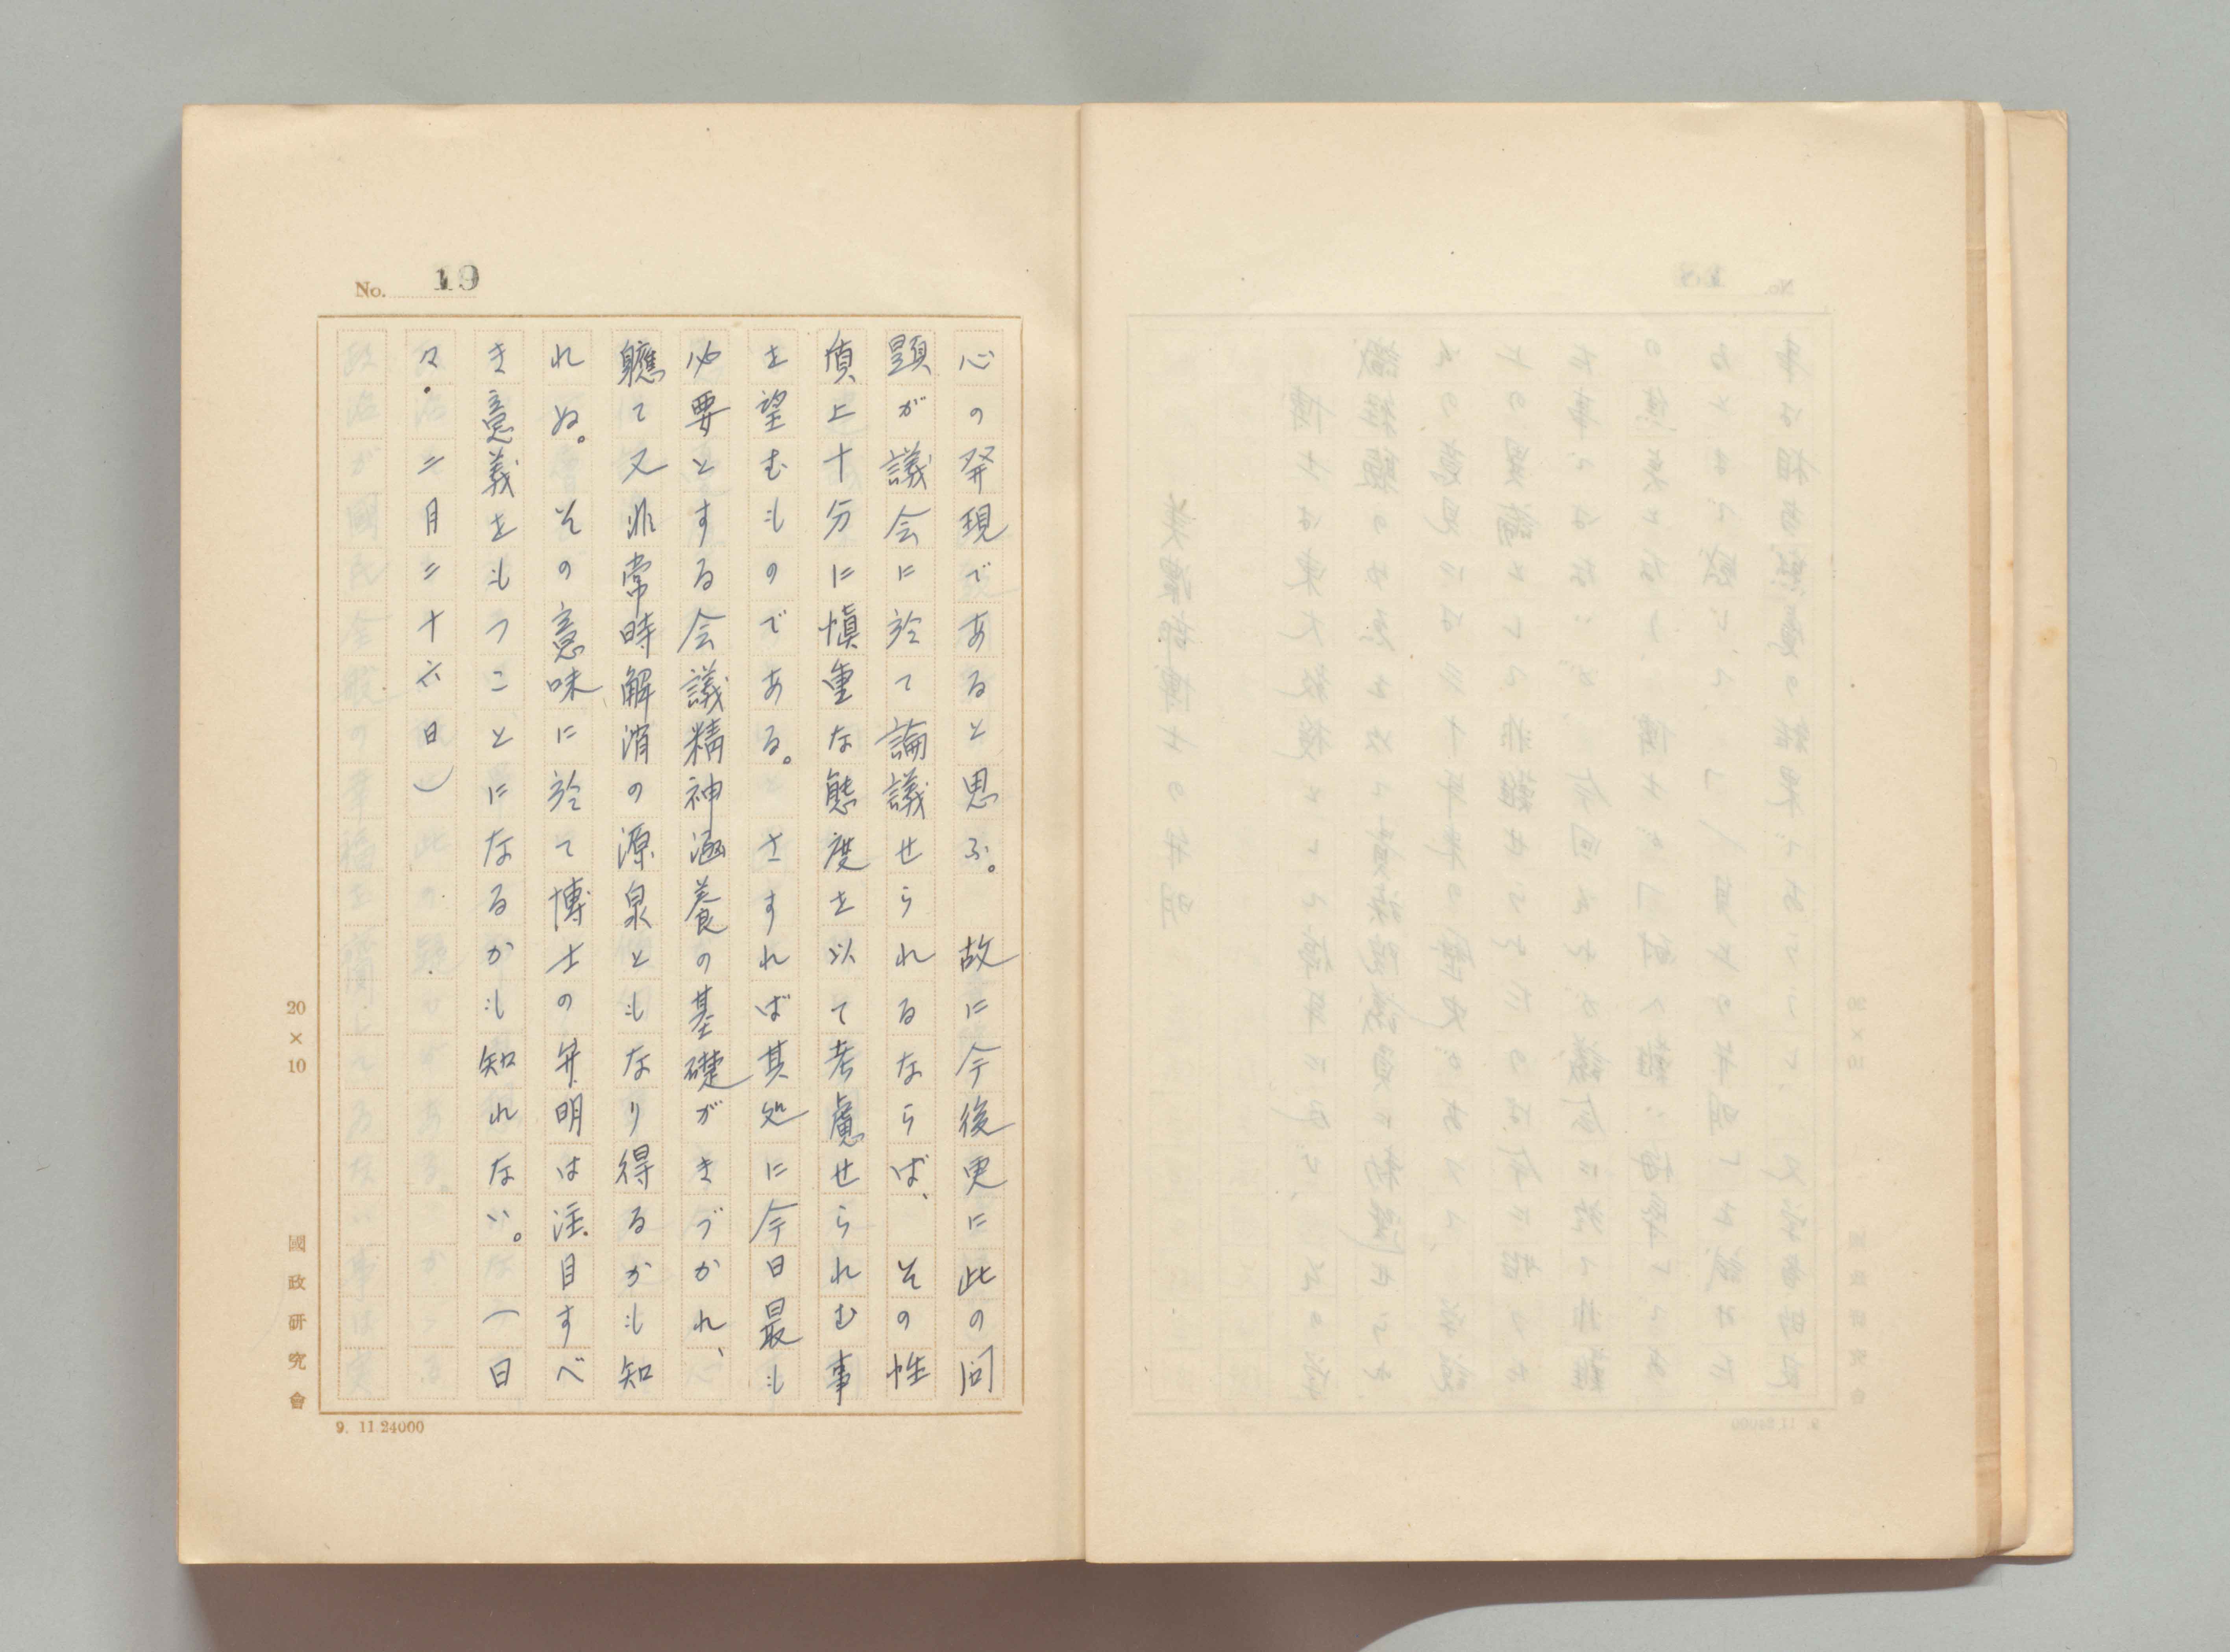 No. 19
心の発現であると思ふ。 故に今後更に此の問
題が議会に於て論議せられるならば、 その性
質上十分に慎重な態度を以て考慮せられむ事
を望むものである。 さすれば其処に今日最も
必要とする会議精神涵養の基礎がきづかれ、
軈て又非常時解消の源泉ともなり得るかも知
れぬ。 その意味に於て博士の弁明は注目すべ
き意義をもつことになるかも知れない。(日
々・二月二十六日)
20×10
國政研究會
9. 11 24000